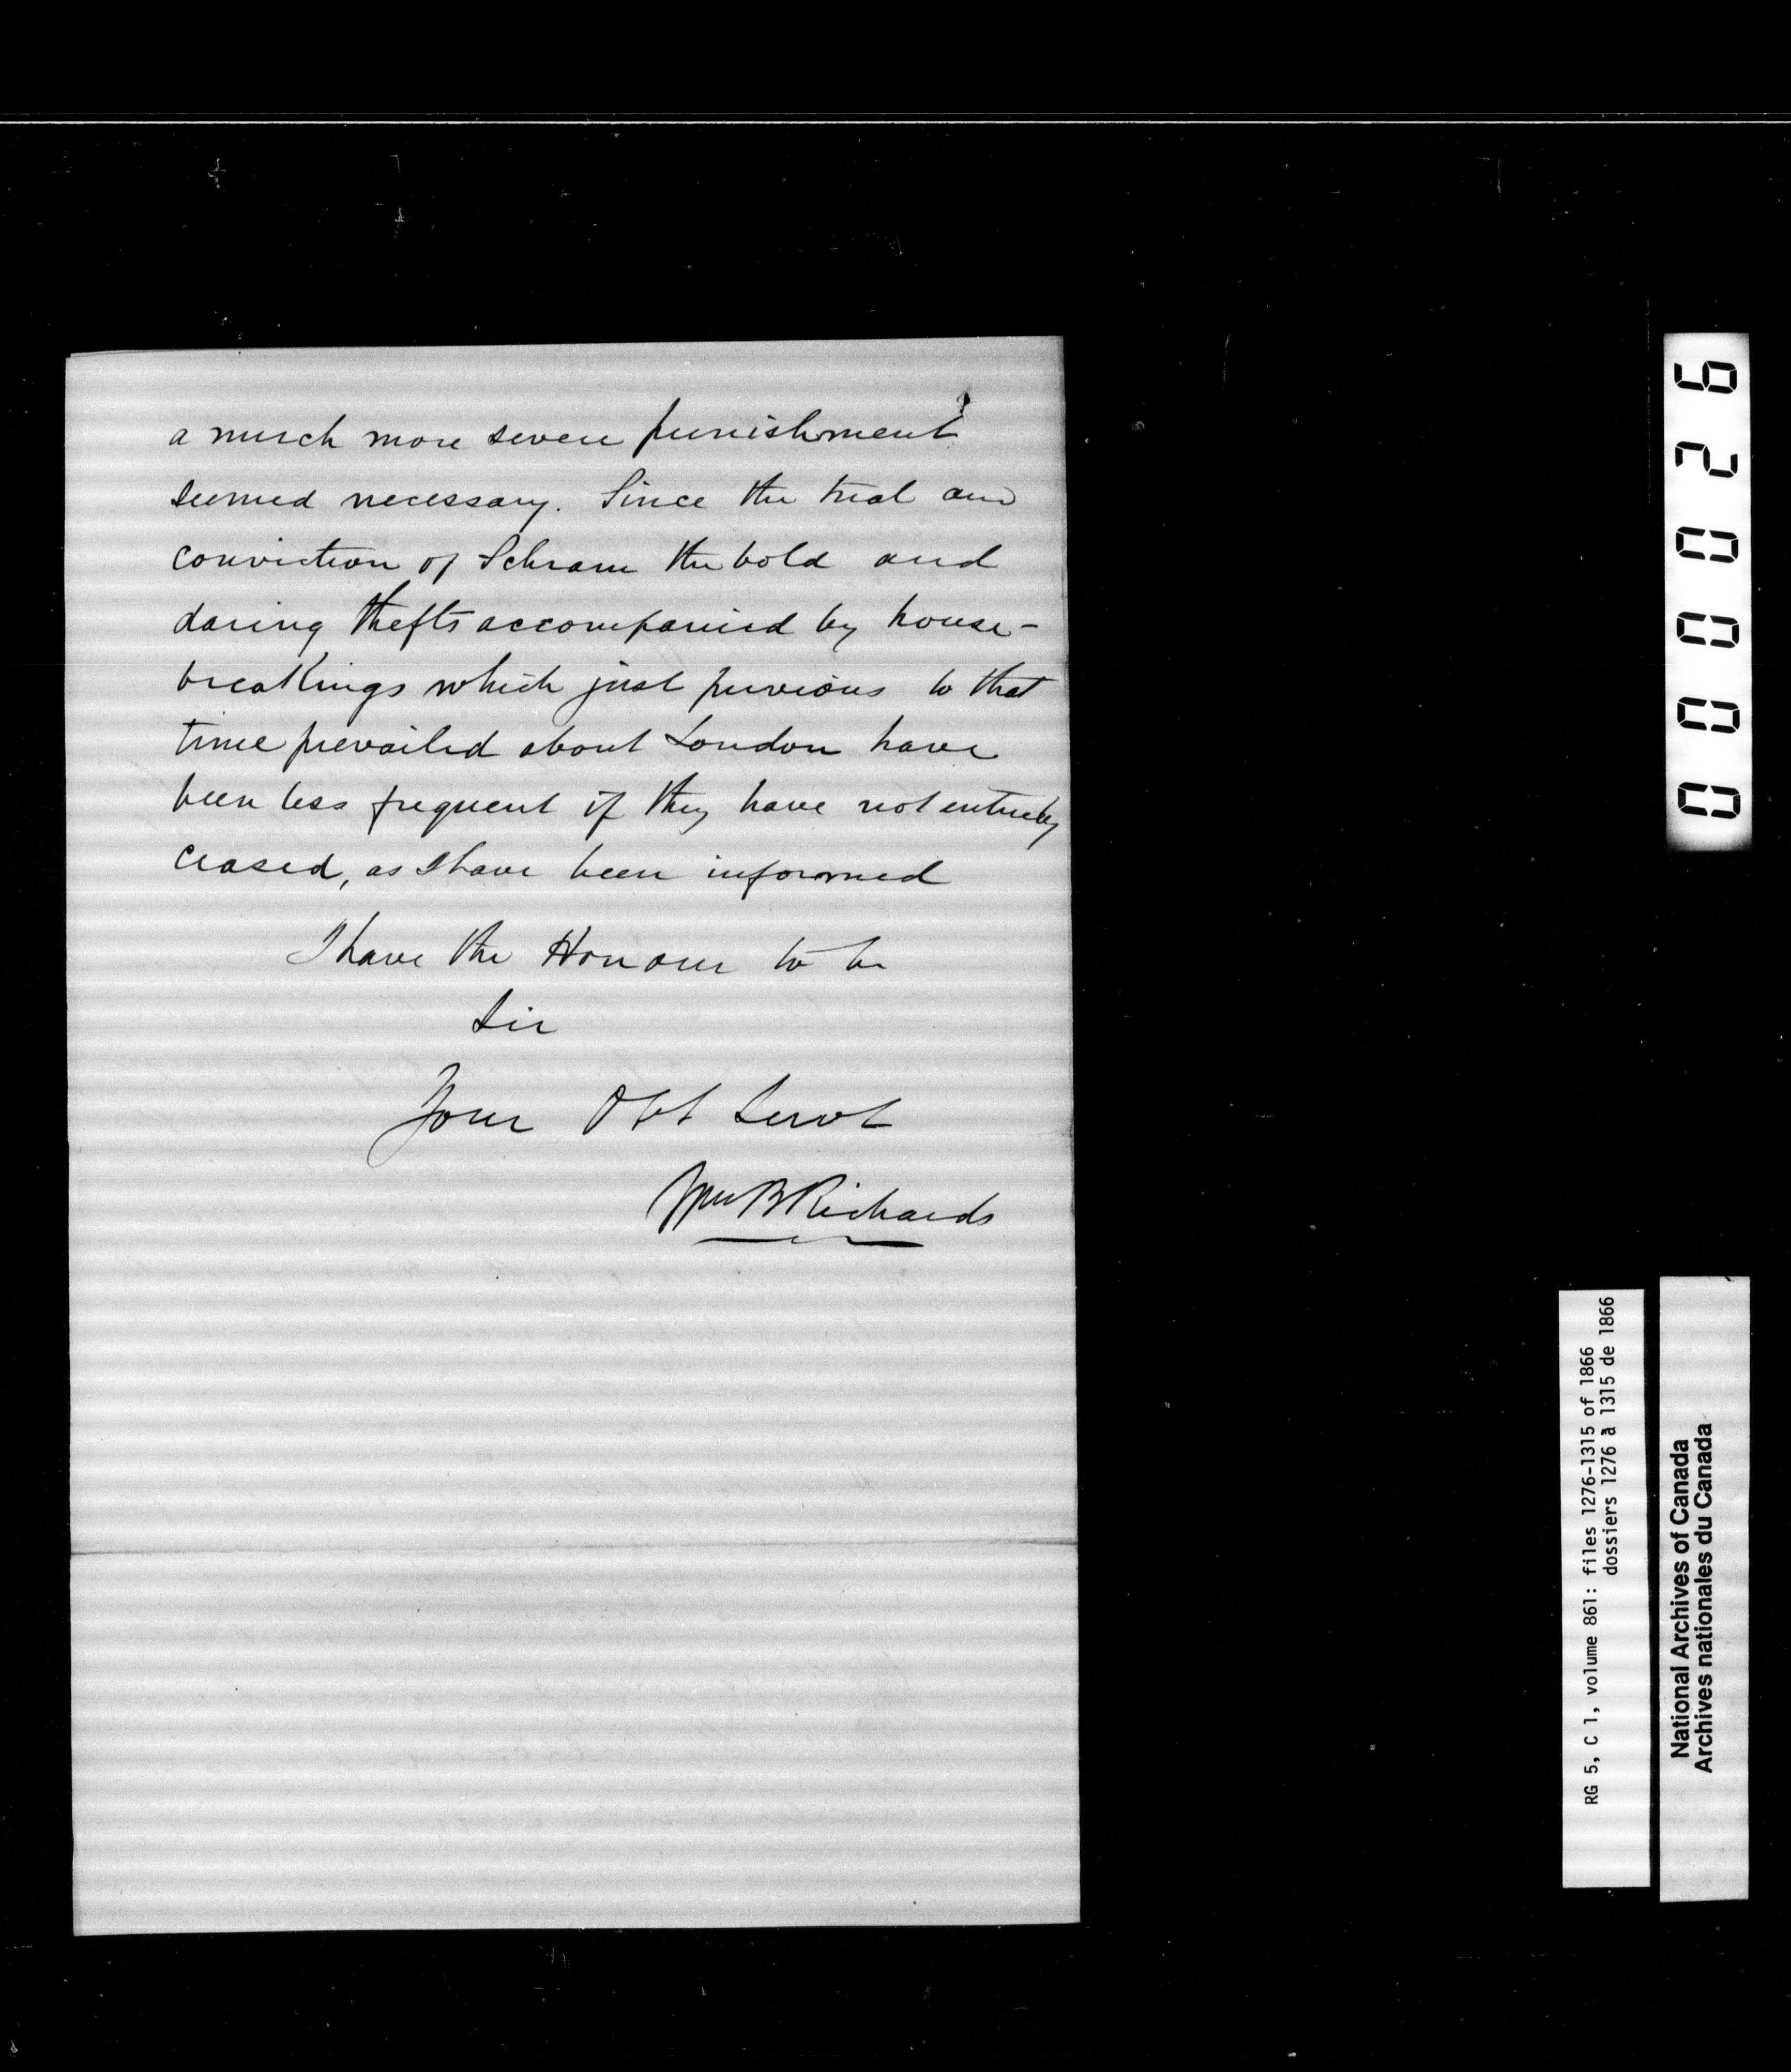 a much more severe punishment
seemed necessary. Since the trial and
conviction of Schram the bold and
daring thefts accompanied by house-
breakings which just previous to that
time prevailed about London have
been less frequent if they have not entirely
ceased, as I have been informed
I have the Honour to be
Sir
Your Obt Servt
Wm B Richards
000026
RG 5, C 1, volume 861: files 1276-1315 of 1866
dossiers 1276 à 1315 de 1866
National Archives of Canada
Archives nationales du Canada